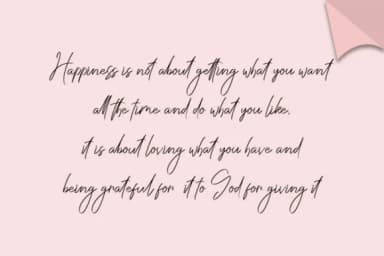 Happiness is not about getting what you want
all the time and do what you like,
it is about loving what you have and
being grateful for it to God for giving it